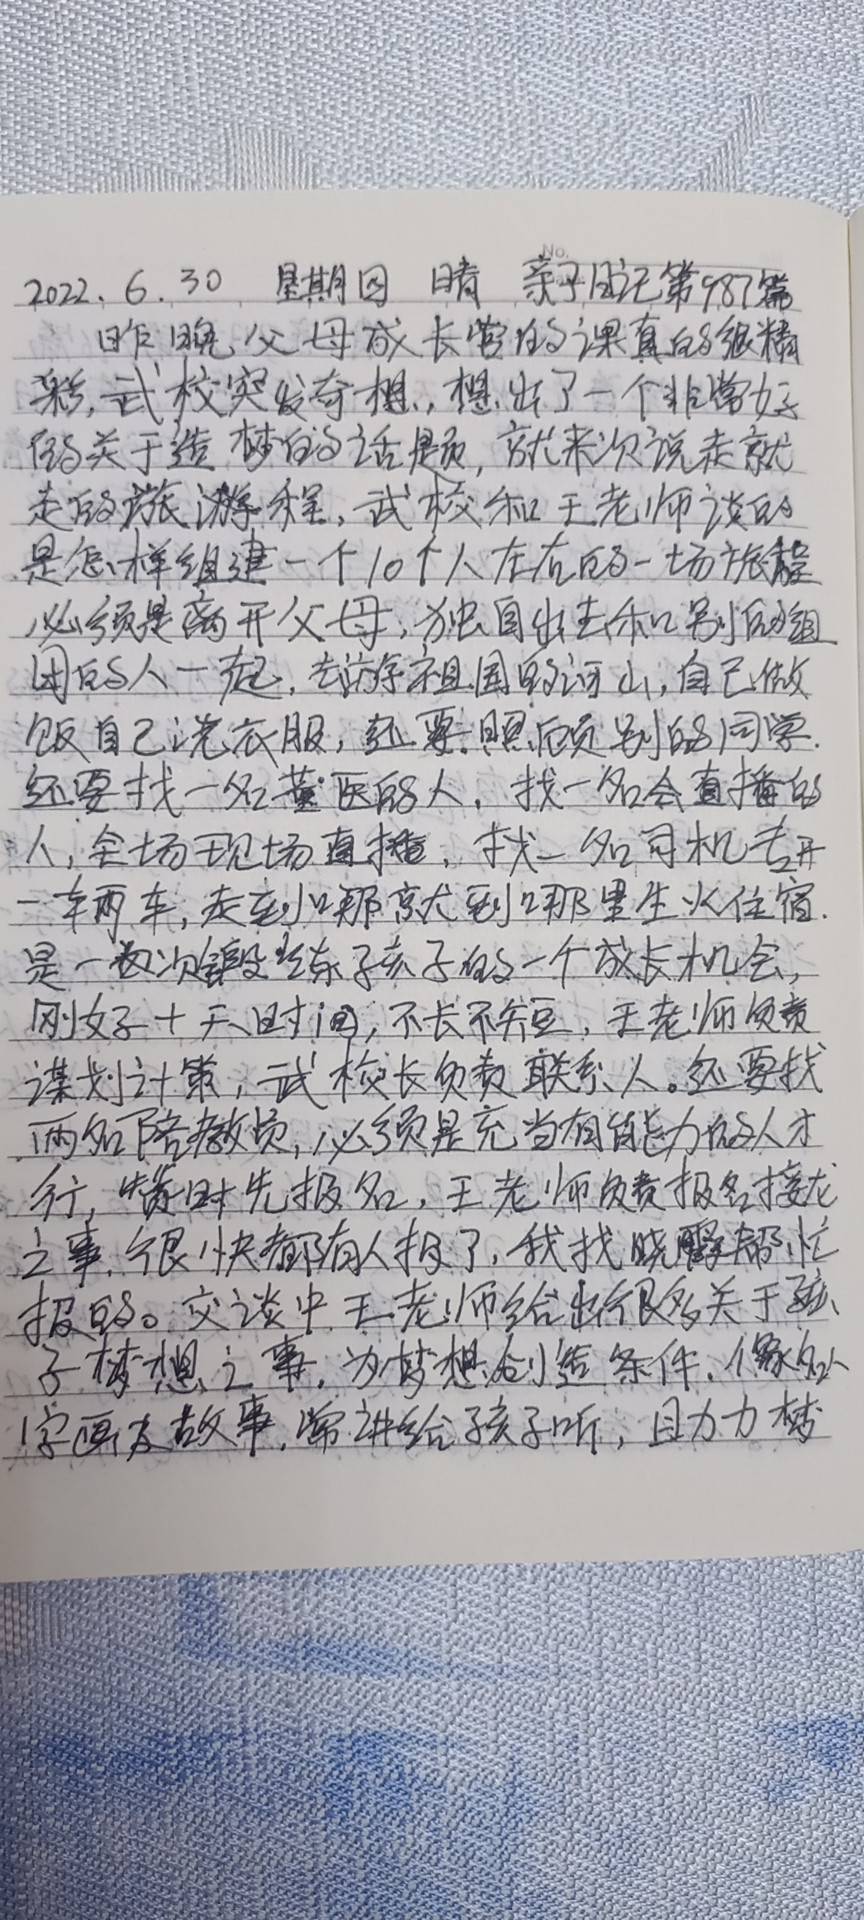 2022.6.30 星期四 晴 亲子日记第987篇
昨晚父母成长营的课真的很精
彩,武校突发奇想,想出了一个非常好
的关于造梦的话题,就来次说走就
走的旅游程,武校和王老师谈的
是怎样组建一个10个人左右的一场旅程
必须是离开父母,独自出去和别的组
团的人一起,去游祖国的河山,自己做
饭自己洗衣服,还要照顾别的同学.
还要找一名 医的人,找一名会直播的
人,全场现场直播,找一名司机专开
一车两车,走到哪就到哪里生火住宿.
是一次锻炼孩子的一个成长机会,
刚好十天时间,不长不短,王老师负责
谋划计策,武校长负责联系人。还要找
两名陪教员,必须是充当有能力的人才
行,当时先报名,王老师负责报名接龙
之事,很快都有人报了,我找晓 帮忙
报的。交谈中王老师给出很多关于孩
子梦想之事,为梦想创造条件.像名人
字画及故事,常讲给孩子听,且力力梦